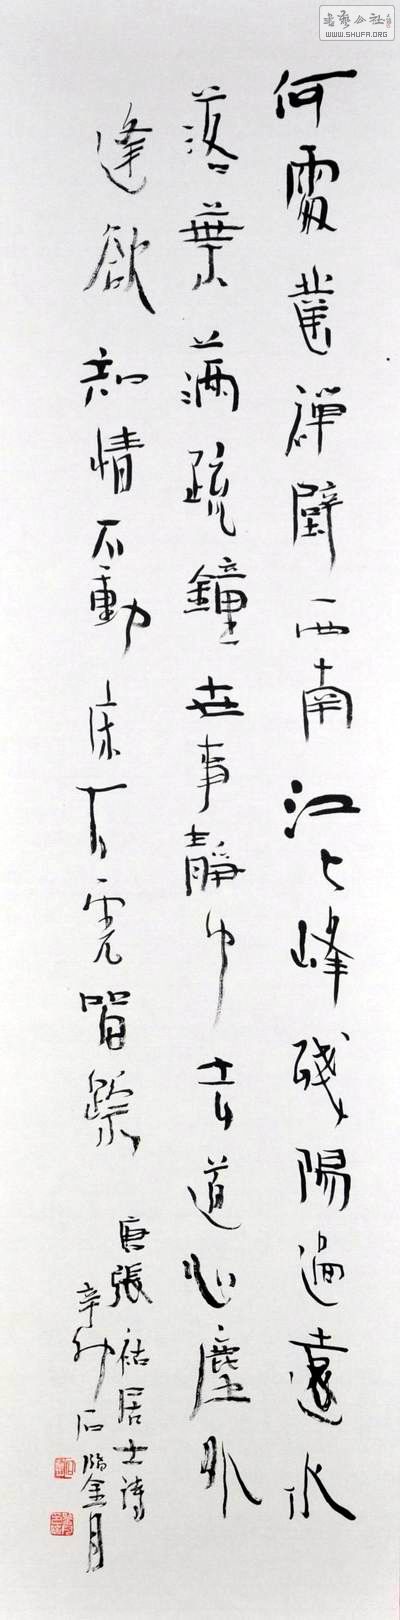 書藝公社
WWW.SHUFA.ORG
何處鑿禪壁西南江上峰殘陽過遠水
落葉滿疏鐘世事靜中去道心塵外
逢欲知情不動床下虎留蹤
唐張祜居士詩
辛卯石